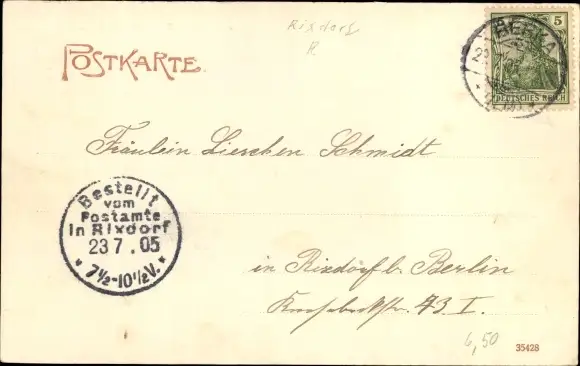 Rixdorf
R
POSTKARTE.
BERKA
5
DEUTSCHES REICH
Fräulein Lieschen Schmidt
Bestellt
vom
Postamte
in Rixdorf
23 7. 05
* 7½-10½V. *
in Rixdorf b. Berlin
43 I.
6,50
35428